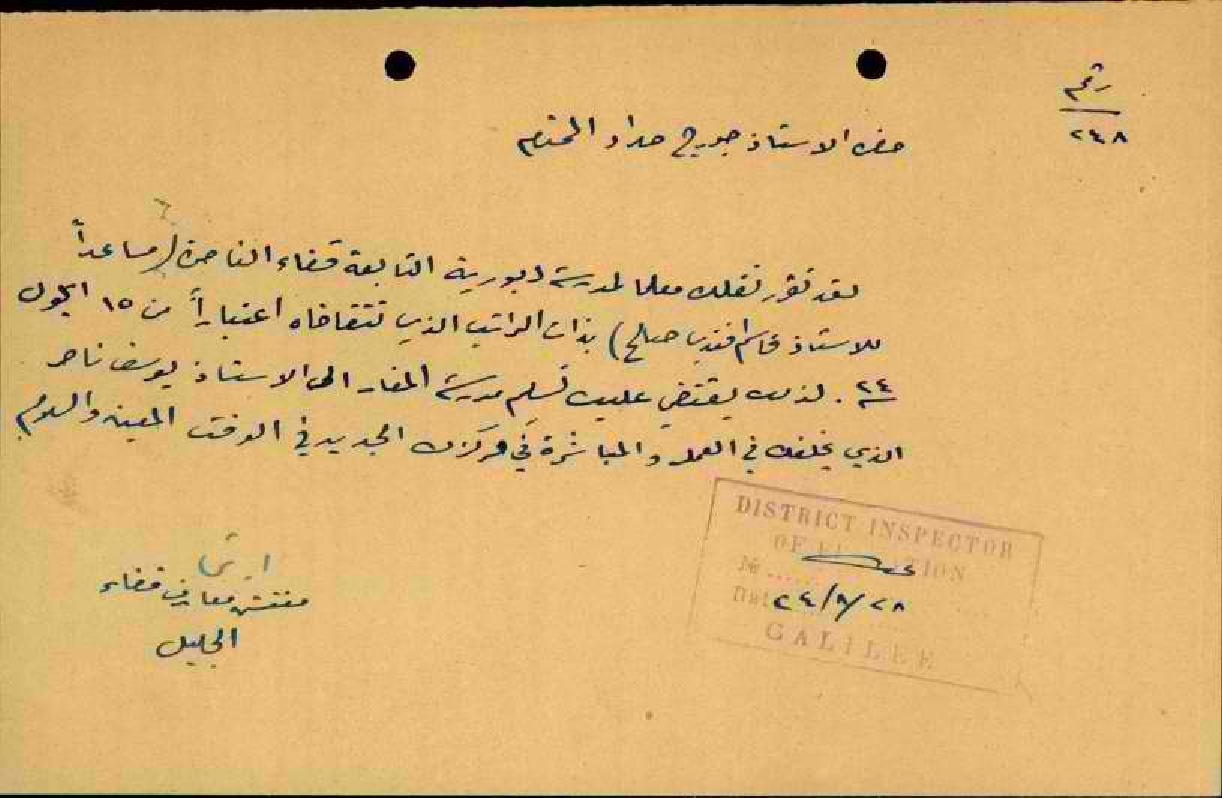 رقم
٢٤٨
حضرة الاستاذ جورج حداد المحترم
لقد تقرر نقلك معلما لمدرسة دبورية التابعة قضاء الناصرة (مساعداً
للاستاذ قاسم افندي صالح) بذات الراتب الذي تتقاضاه اعتباراً من ١٥ ايلول
٢٤. لذلك يقتضي عليك تسليم مدرسة المغار الى الاستاذ يوسف ناصر
الذي يخلفك في العمل والمباشرة في مركزك الجديد في الوقت المعين والسلام
DISTRICT INSPECTOR
OF EDUCATION
№
Date ٢٤/٨/٢٨
GALILEE
مفتش معارف قضاء
الجليل